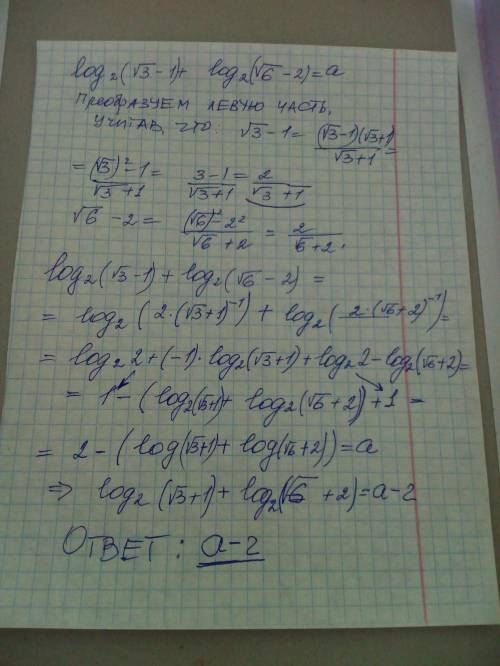 log₂(√3-1)+ log₂(√6-2)=a
Преобразуем левую часть,
учитав, что: √3-1= (√3-1)(√3+1)/√3+1 =
= (√3)²-1/√3+1 = 3-1/√3+1 = 2/√3+1
√6-2= (√6)²-2²/√6+2 = 2/√6+2.
log₂(√3-1)+log₂(√6-2) =
= log₂(2·(√3+1)⁻¹) + log₂(2·(√6+2)⁻¹)=
= log₂2+(-1)·log₂(√3+1)+log₂2-log₂(√6+2)=
= 1-(log₂(√3+1)+ log₂(√6+2))+1 =
= 2-(log(√3+1)+log(√6+2))=a
⇒ log₂(√3+1)+log₂(√6+2)=a-2
Ответ: a-2